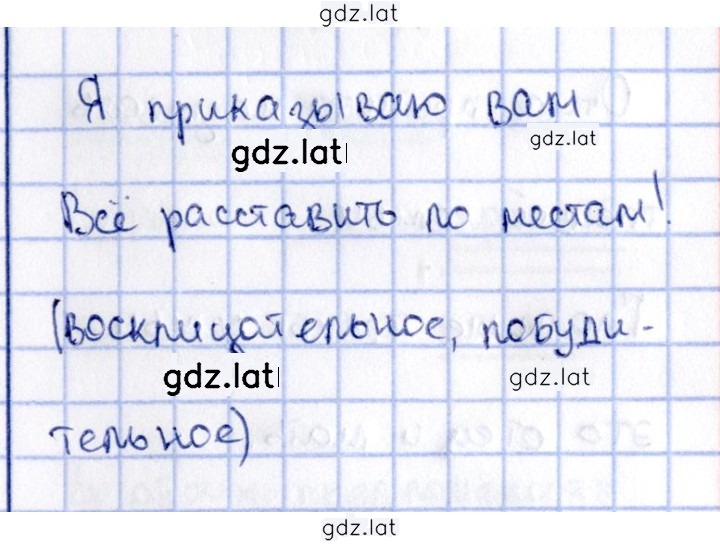 gdz.lat
Я приказываю вам
gdz.lat
gdz.lat
Всё расставить по местам!
(восклицательное, побуди-
gdz.lat
gdz.lat
тельное)
gdz.lat